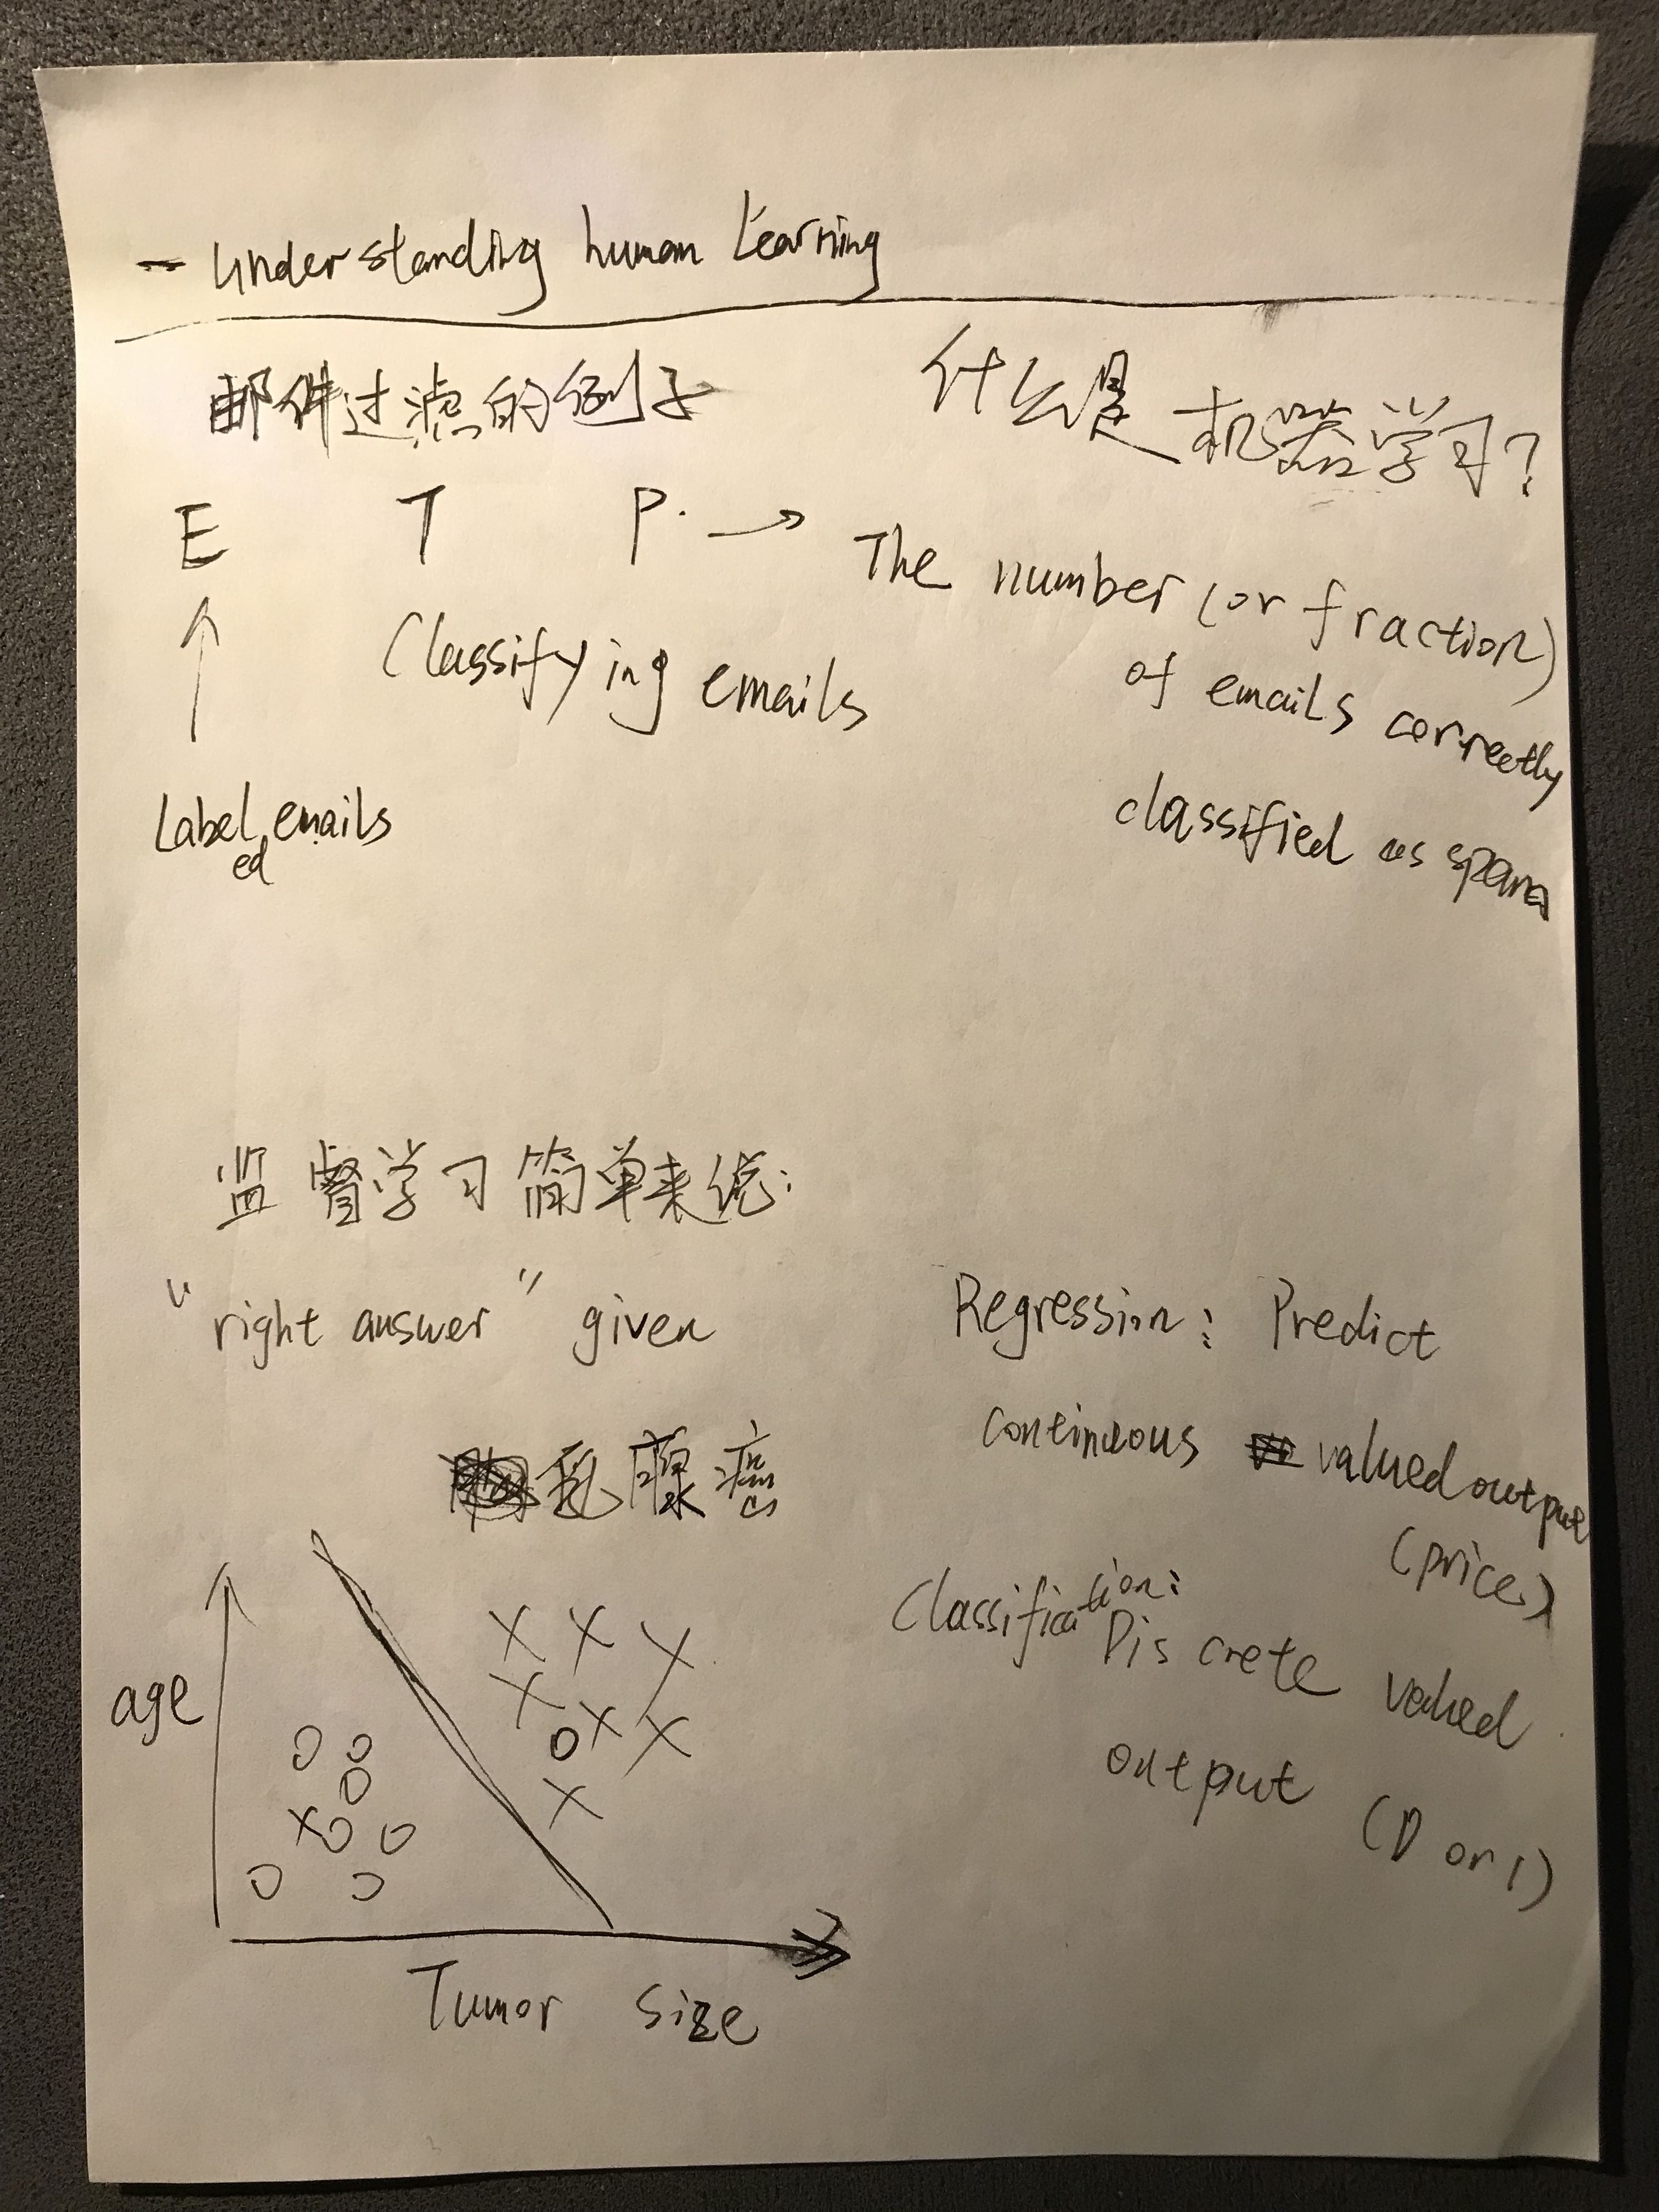 - Understanding human Learning
邮件过滤的例子
什么是机器学习?
E T P. → The number (or fraction)
of emails correctly
classified as spam
↑ Classifying emails
Labeled emails
监督学习简单来说:
"right answer" given
Regression: Predict
continuous valued output
(price)
Classification:
Discrete valued
output (0 or 1)
乳腺癌
age
Tumor size